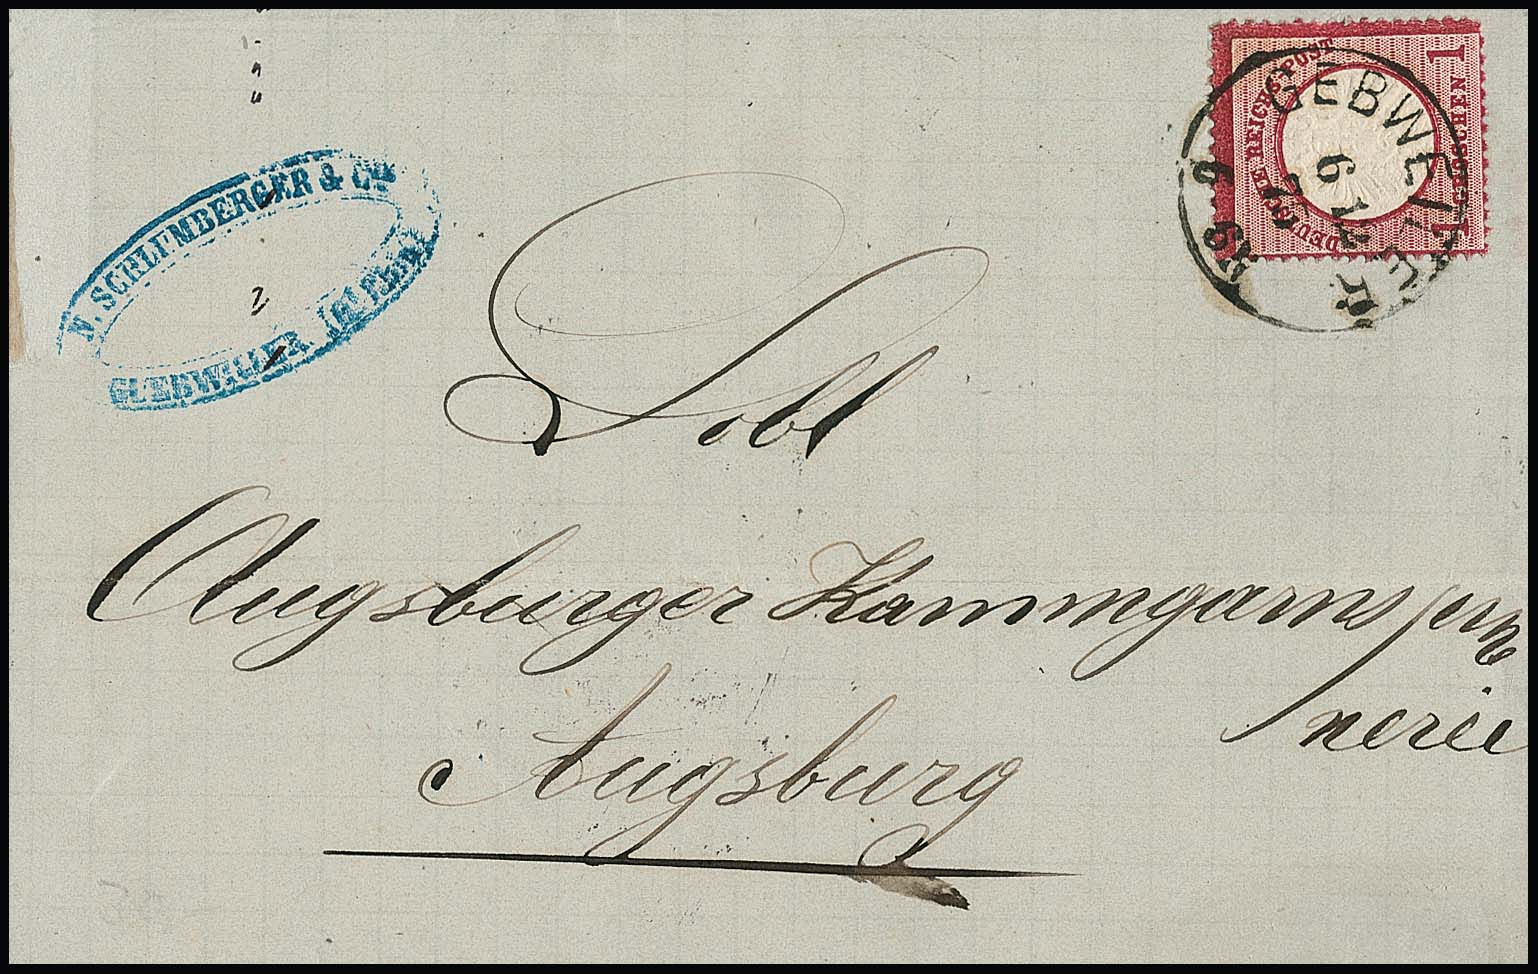 N. SCHLUMBERGER & Cie
GUEBWILLER (Ht Rhin)
DEUTSCHE REICHS-POST
1 GROSCHEN 1
GEBWEILER
6 12
72
Lobl
Augsburger Kammgarnspin
nerei
Augsburg